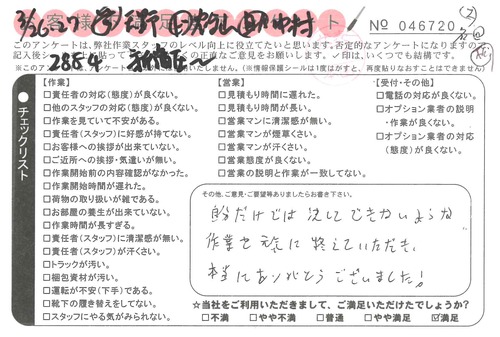 お客様満足 ト
No 046720
このアンケートは、弊社作業スタッフのレベル向上に役立てたいと思います。否定的なアンケートになりますので
記入後シ 貼って の正直なご意見をお願いします。✓印は、いくつでも結構です。
※このアン (※情報保護シールは1度はがすと、再度貼りなおすことはできません)
チェックリスト
【作業】
□責任者の対応(態度)が良くない。
□他のスタッフの対応(態度)が良くない。
□作業を見ていて不安がある。
□責任者(スタッフ)に好感が持てない。
□お客様への挨拶が出来ていない。
□ご近所への挨拶・気遣いが無い。
□作業開始前の内容確認がなかった。
□作業開始時間が遅れた。
□荷物の取り扱いが雑である。
□お部屋の養生が出来ていない。
□作業時間が長すぎる。
□責任者(スタッフ)に清潔感が無い。
□責任者(スタッフ)が汗くさい。
□トラックが汚い。
□梱包資材が汚い。
□運転が不安(下手)である。
□靴下の履き替えをしてない。
□スタッフにやる気がみられない。
【営業】
□見積もり時間に遅れた。
□見積もり時間が長い。
□営業マンに清潔感が無い。
□営業マンが煙草くさい。
□営業マンが汗くさい。
□営業態度が良くない。
□営業の説明と作業が一致してない。
【受付・その他】
□電話の対応が良くない。
□オプション業者の説明
・作業が良くない。
□オプション業者の対応
(態度)が良くない。
その他、ご意見・ご要望等ありましたらお書き下さい。
自分だけでは決してできないような
作業を元気に終えていただき、
本当にありがとうございました!
☆当社をご利用いただきまして、ご満足いただけたでしょうか?
□不満 □やや不満 □普通 □やや満足 ☑満足